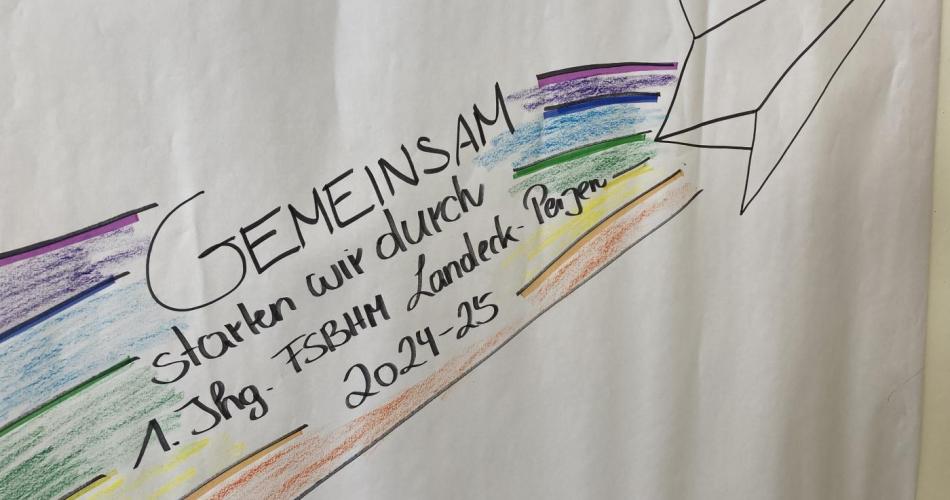 GEMEINSAM
starten wir durch
1. Jhg. FSBHM Landeck-Perjen
2024-25